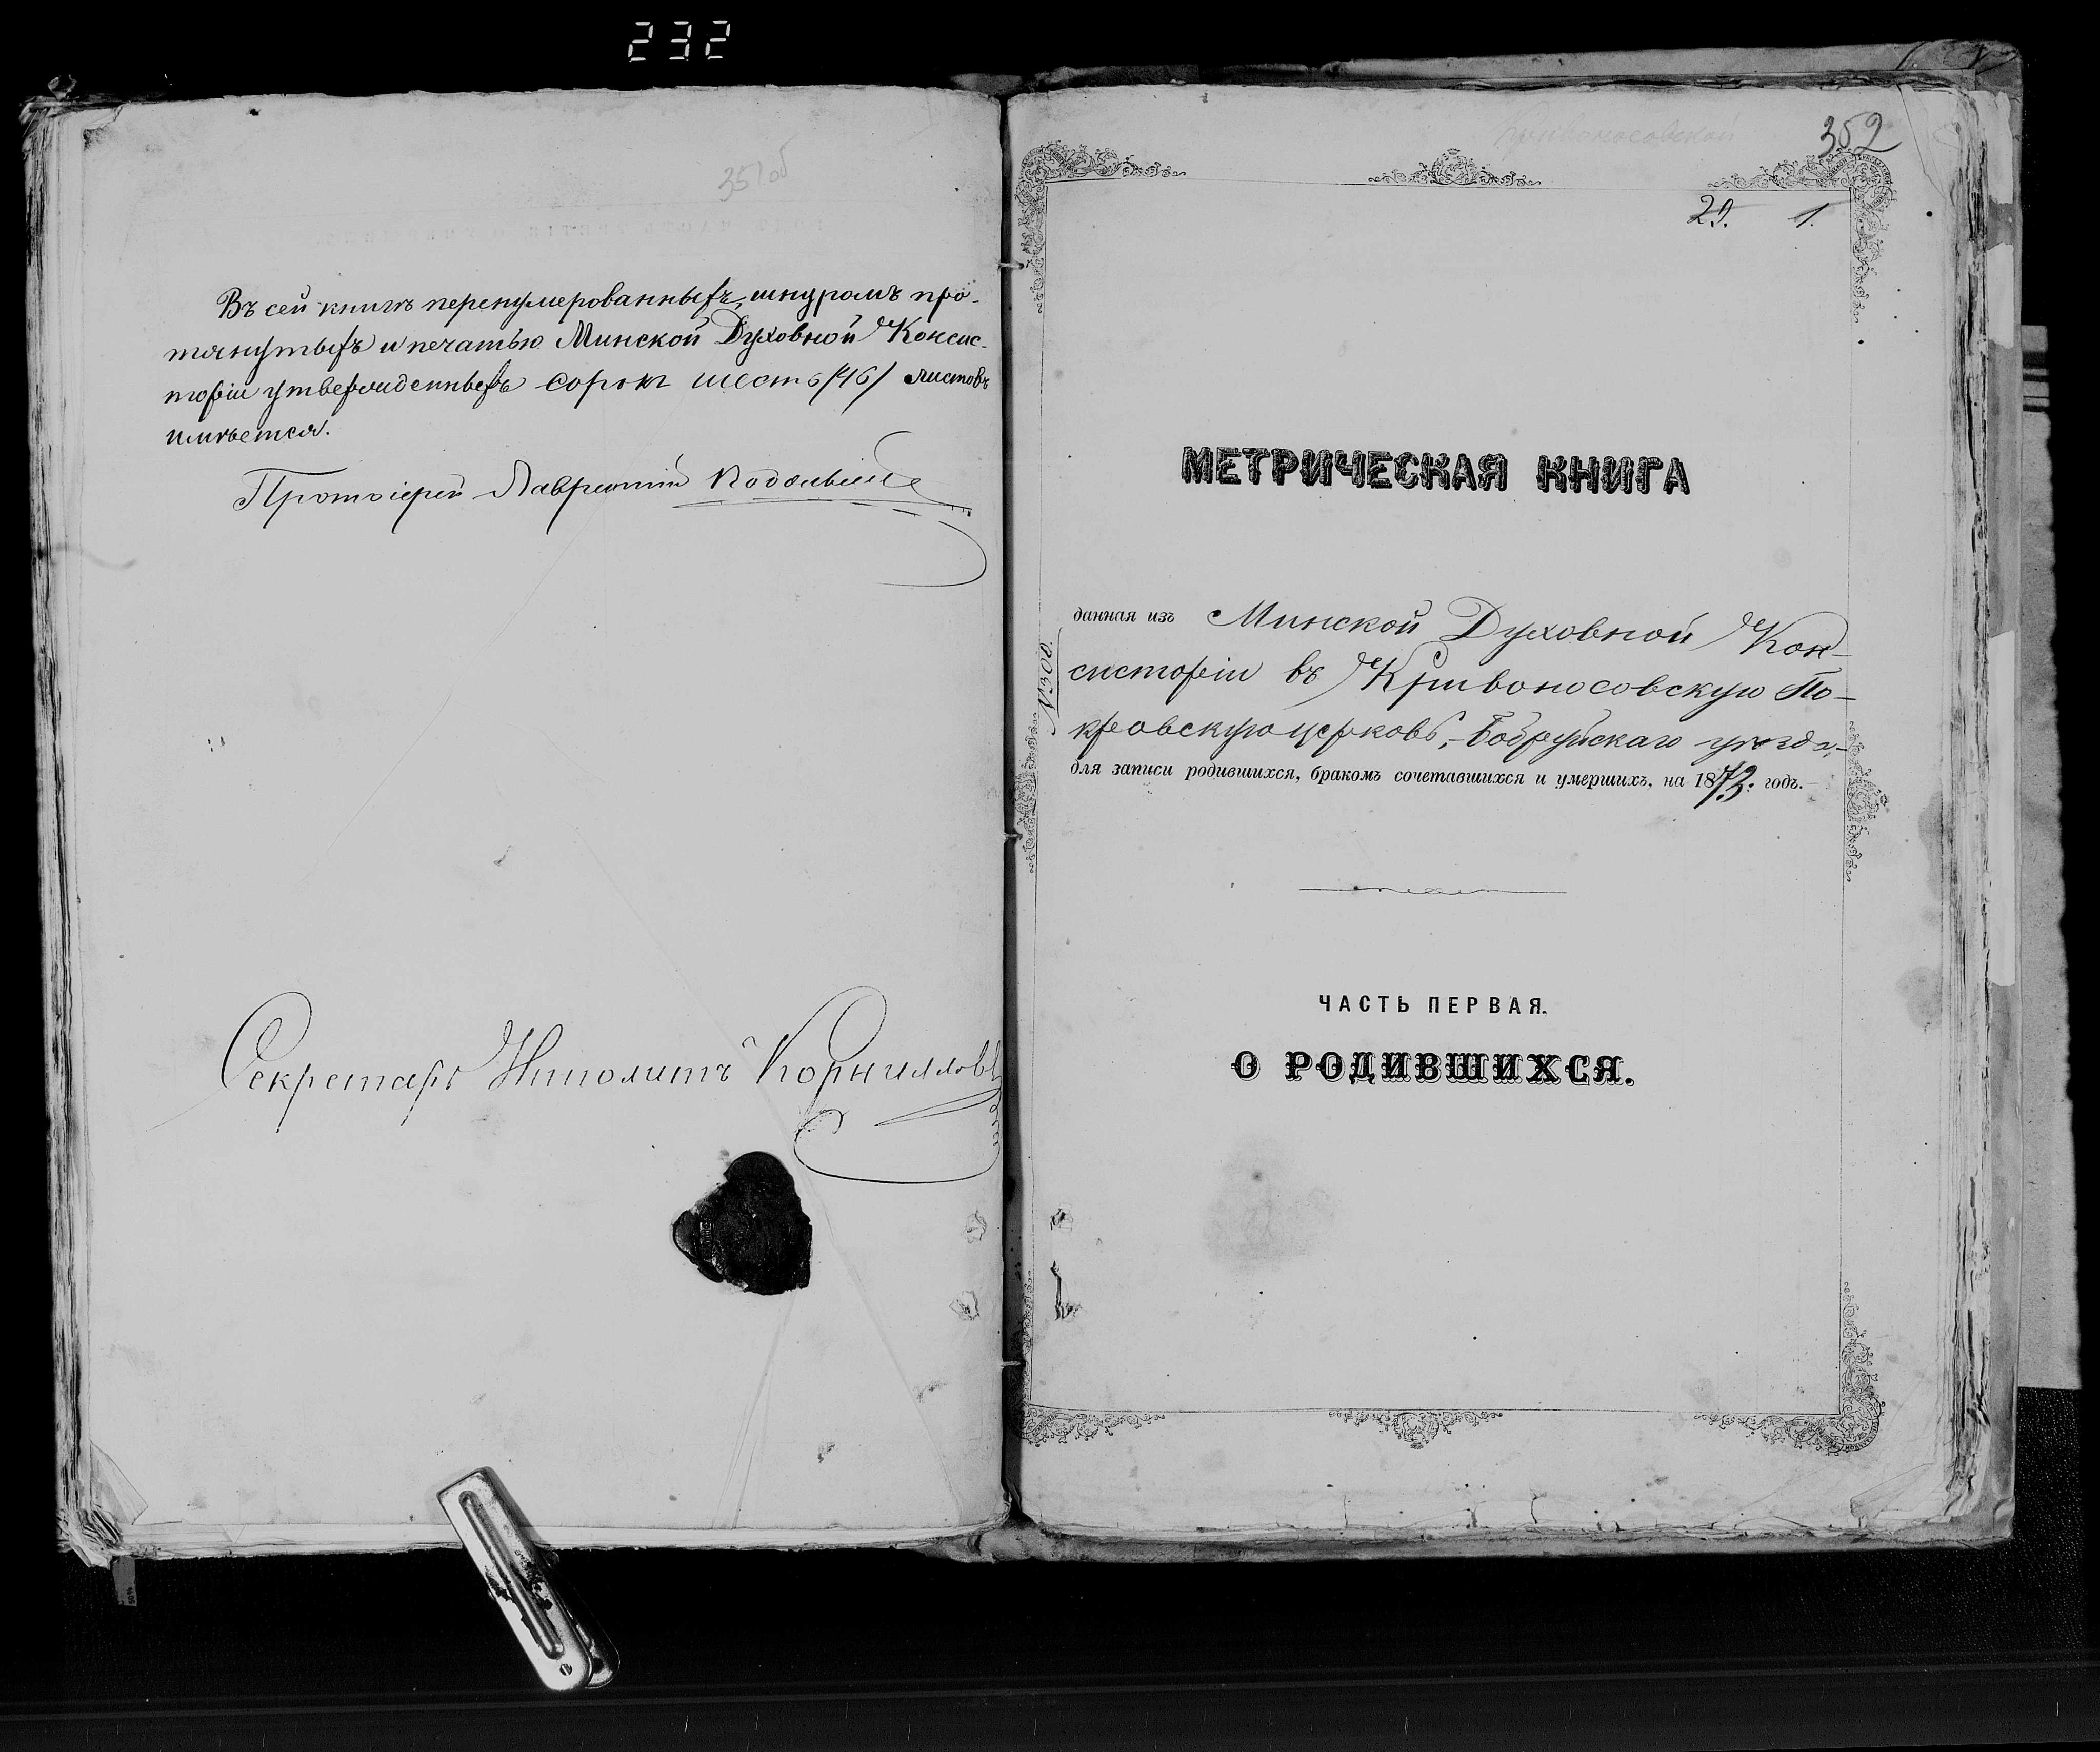 232
351об
Въ сей книгѣ перенумерованныхъ, шнуромъ про-
тянутыхъ и печатью Минской Духовной Консис-
торіи утвержденныхъ сорокъ шесть /46/ листовъ
имѣется.
Протоіерей Лаврентій
Секретарь Ипполитъ Корниллов
Кривоносовской
352
29. 1.
МЕТРИЧЕСКАЯ КНИГА
№300.
данная изъ Минской Духовной Кон-
систоріи въ Кривоносовскую По-
кровскую церковь, Бобруйскаго уѣзда,
для записи родившихся, бракомъ сочетавшихся и умершихъ, на 1873. годъ.
ЧАСТЬ ПЕРВАЯ.
О РОДИВШИХСЯ.